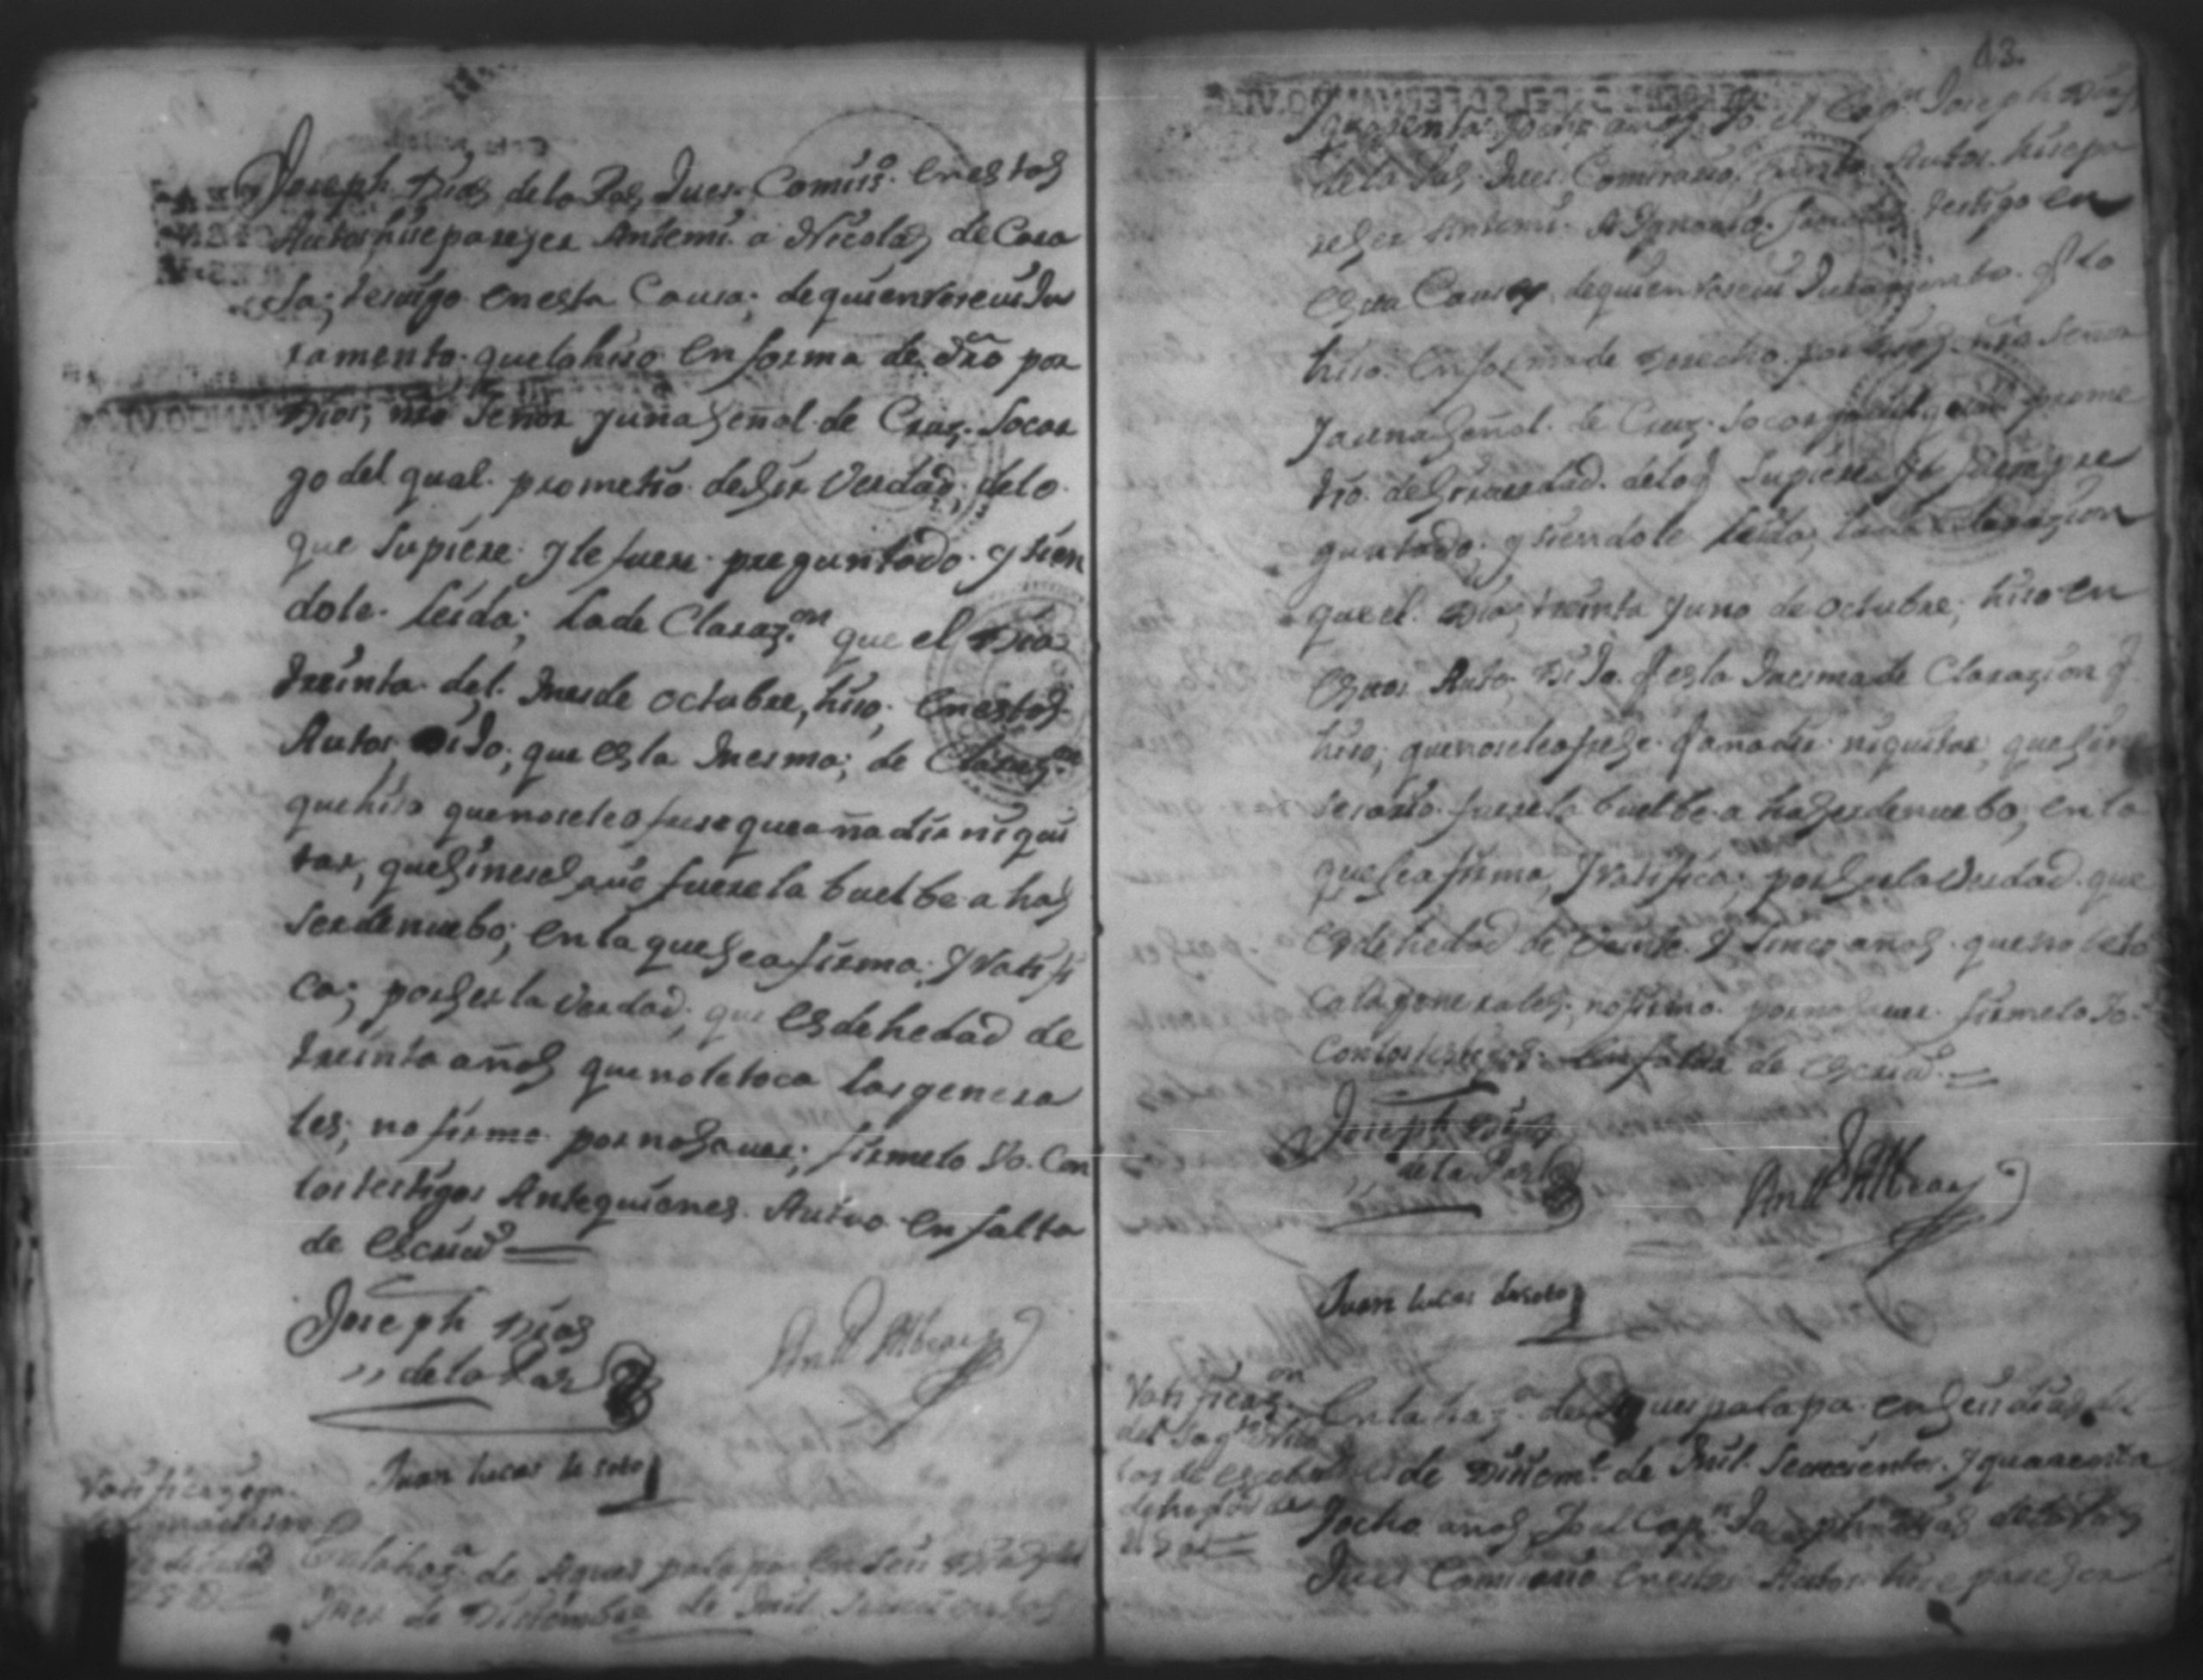 Joseph Dias de la Pas Jues Comiss.o en estos
Autos hise pareser Antemi a Nicolas de Casa
testigo en esta Causa; de quien reseui Ju
ramento que lo hiso en forma de dro por
Dios, nro Señor y una Señal de Cruz. Socar
go del qual prometio desir Verdad de lo
que Supiere y le fuere preguntado y sien
dole leida; la de Claraz.on que el Dia
treinta del mes de octubre, hiso; en estos
Autos Dijo; que es la mesma; de Claraz.on
que hiso que no se le ofrese que añadir ni qui
tar, que Sinesesario fuere la buelbe a has
ser de nuebo; en la que Se afirma; y Ratifi
ca; por Ser la Verdad; que es de hedad de
treinta años que no le toca las genera
les; no firmo por no Sauer; firmelo Yo. Con
los testigos Antequienes Actuo en falta
de escriu.o
Joseph Dias
de la Pas
Juan Lucas de soto
Ratificazion
En la haz.a de Aguespalapa en Seis Dias del
mes de Disiembre de mil Setecientos
13.
y quarenta y ocho años Yo el Cap.n Joseph Dias
de la Pas Jues Comisario en estos Autos hise pa
reser Antemi A Ygnacio testigo en
esta Causa de quien reseui Juramento q.e lo
hiso en forma de Derecho por Dios nro Señor
y a una Señal de Cruz Socargo del qual prome
tio desir verdad de lo q Supiere y le fuere pre
guntado y siendole leida, la declarazion
que el Dia treinta y uno de octubre; hiso en
estos Autos Dijo q es la mesma de Clarazion q
hiso; que no se le ofrese q anadir ni quitar, que Sine
sesario fuere la buelbe a haser de nuebo, en la
que Se afirma, y Ratifica; por Ser la Verdad que
es de hedad de Veinte y Sinco años que no le to
ca la generales; no firmo por no Sauer firmelo Yo
Con los testigos en falta de escriu.o
Joseph Dias
de la Pas
Juan Lucas de soto
Ratificaz.on
del
de escobar
En la haz.a de Aguespalapa en Seis dias del
mes de Disiem.e de mil Setecientos y quarenta
y ocho años Yo el Cap.n Joseph Dias de la Pas
Jues Comisario en estos Autos hise pareser